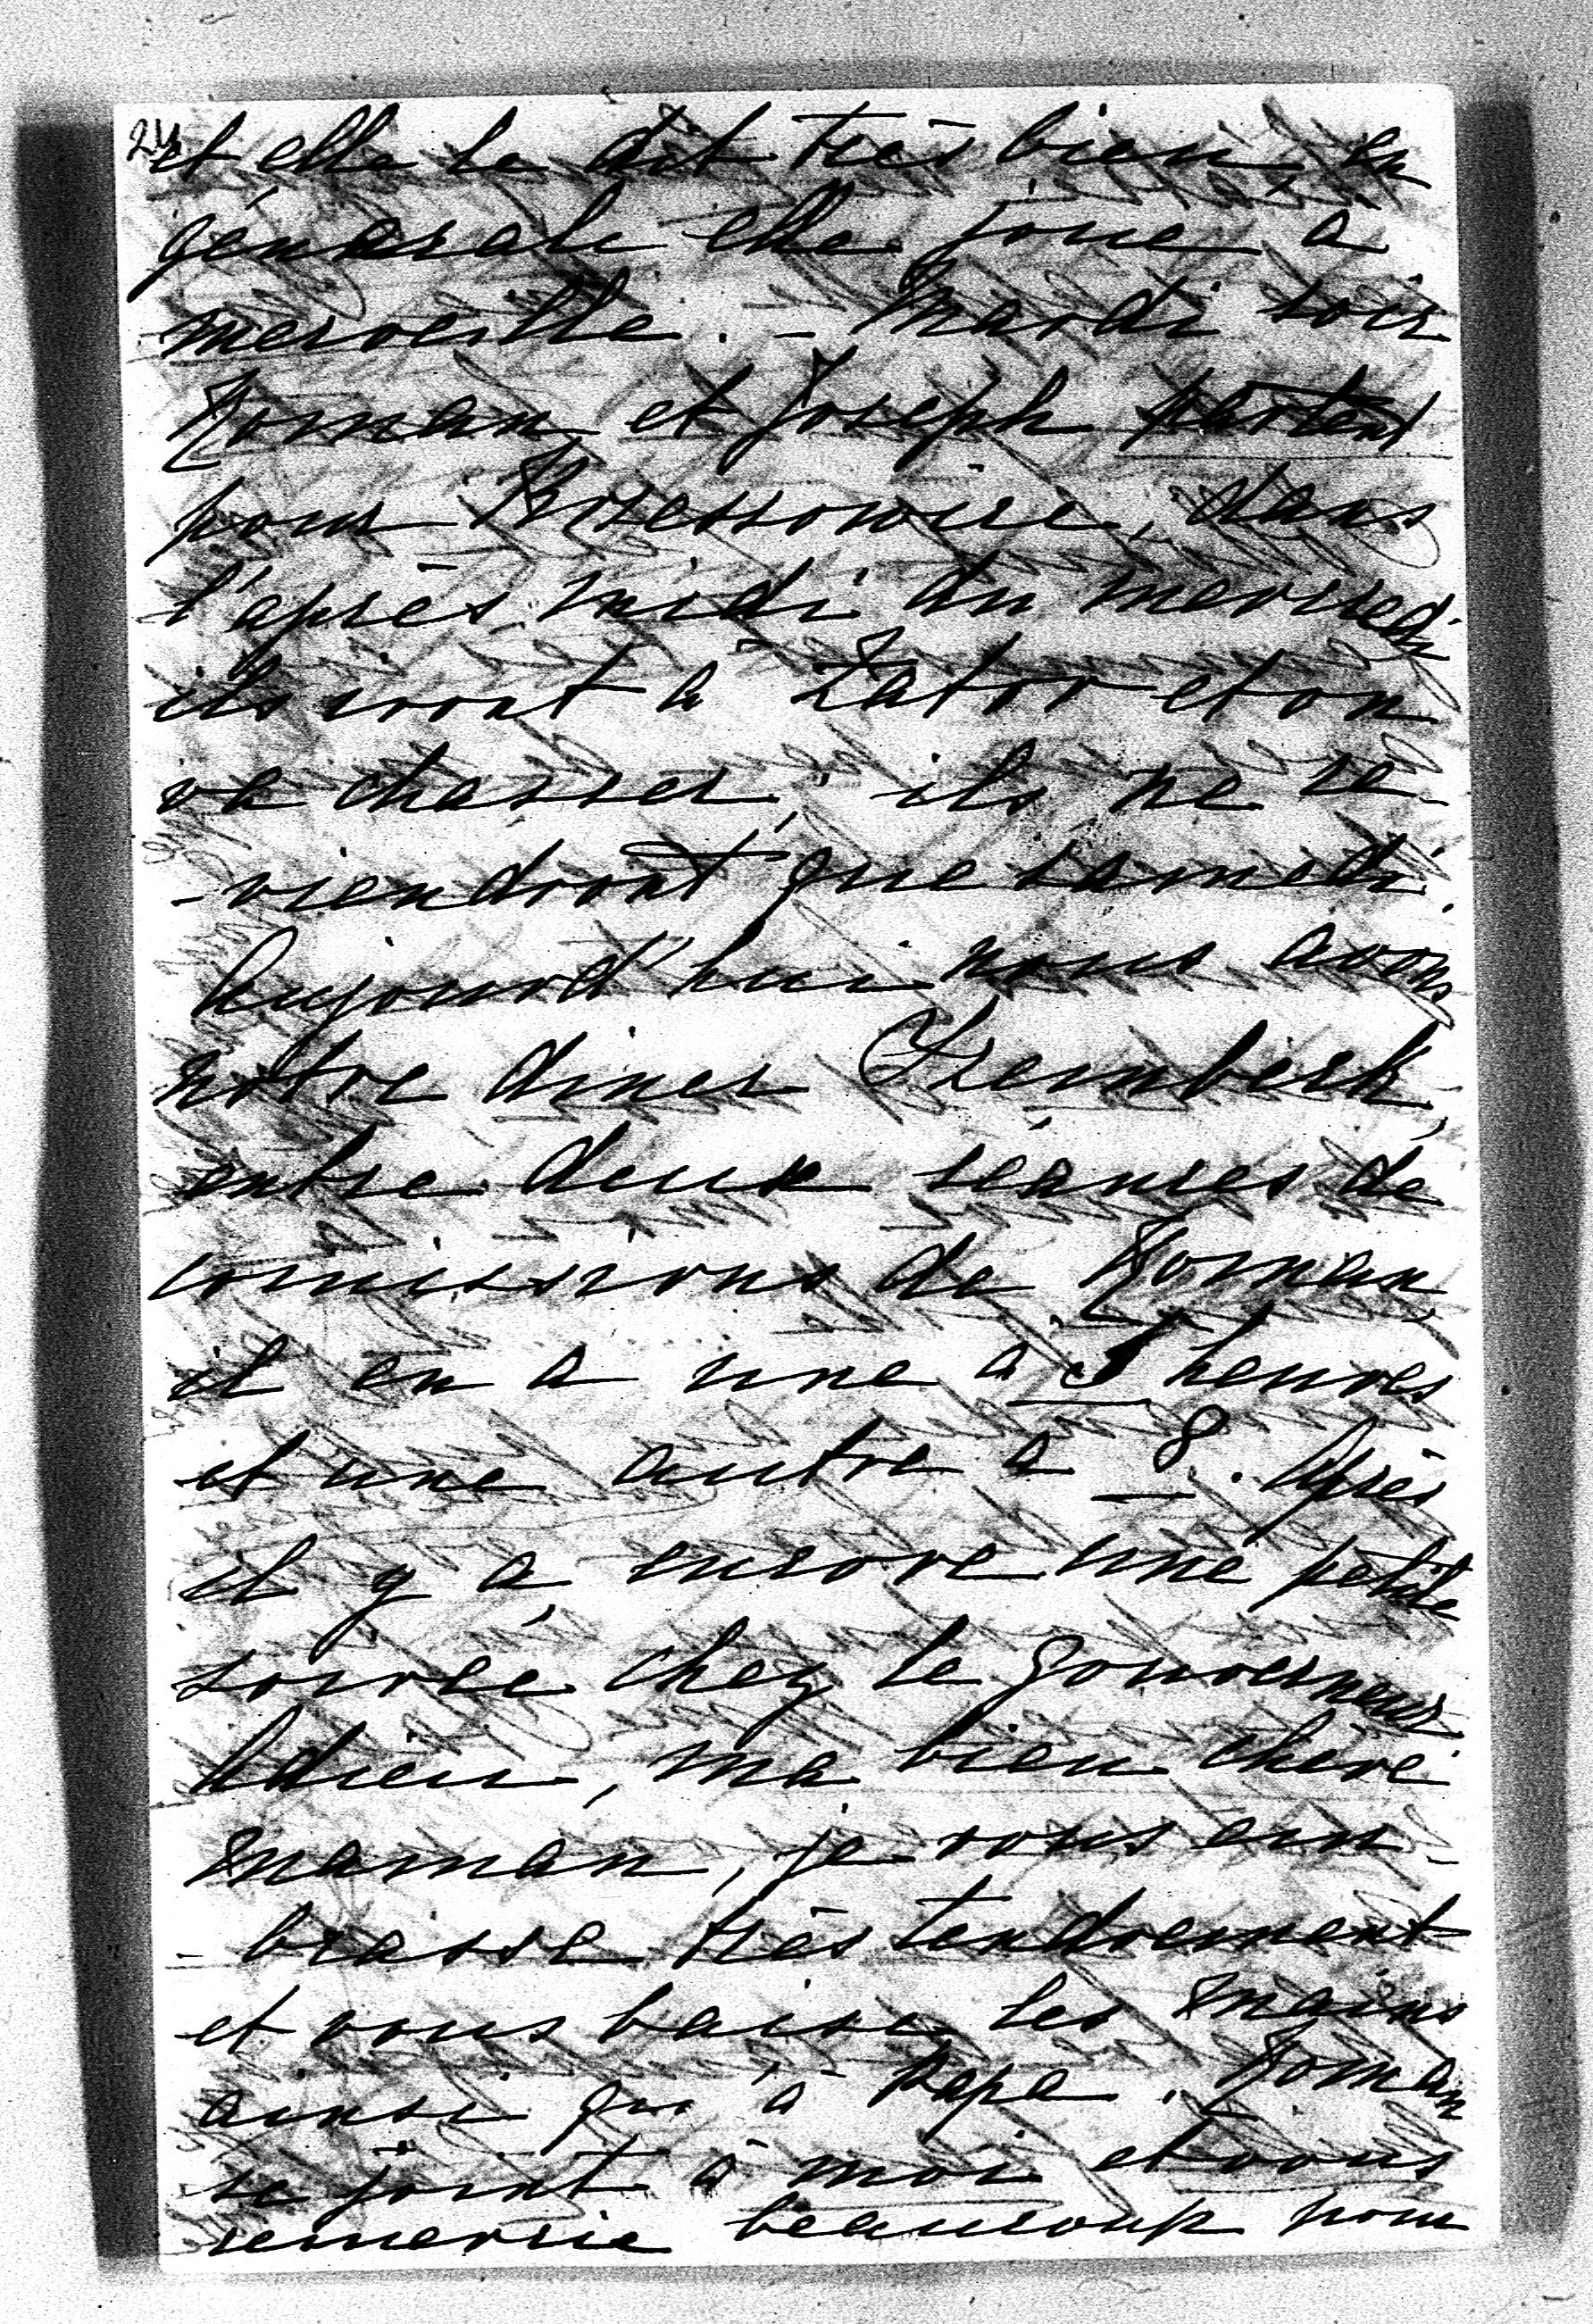 24
et elle le dit très bien, en
générale elle joue à
merveille. - Mardi soir
Roman et Joseph partent
pour Krzessowice, dans
l'après midi du mercredi
ils iront à Zator et on
va chasser, ils ne re-
-viendront que samedi.
Aujourd'hui nous avons
notre diner Trembeck,
entre deux séances de
comissions de Roman,
il en a une à 5 heures
et une autre à 8. Après
il y a encore une petite
soirée chez le gouverneur
Adieu, ma bien chère
maman, je vous em-
-brasse très tendrement
et vous baise les mains
ainsi qu'à Papa. Roman
se joint à moi et vous
remercie beaucoup pour